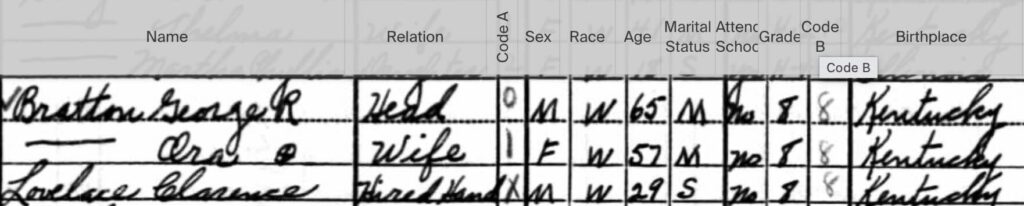 Name Relation Code A Sex Race Age Marital Status Attend School Grade Code B Birthplace
Code B
Bratton George R Head 0 M W 65 M no 8 8 Kentucky
— Ora Wife 1 F W 57 M no 8 8 Kentucky
Lovelace Clarence Hired Hand X M W 29 S no 8 8 Kentucky